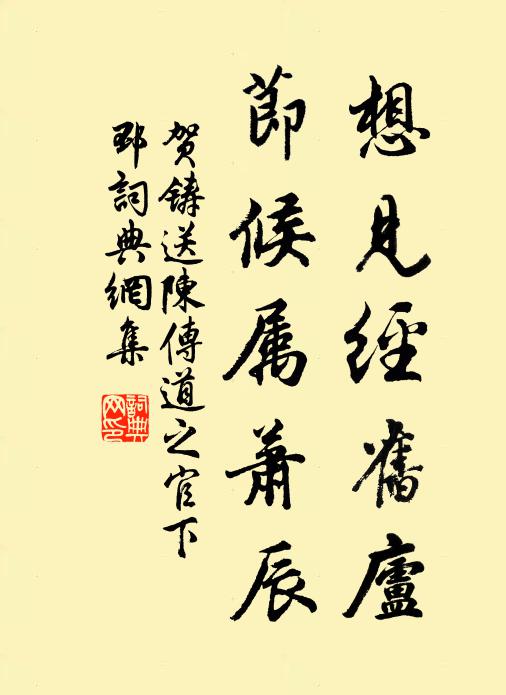 想見經舊廬
節候属蕭辰
賀鑄送陳傳道之官下
邳詞典網集
詞典网印